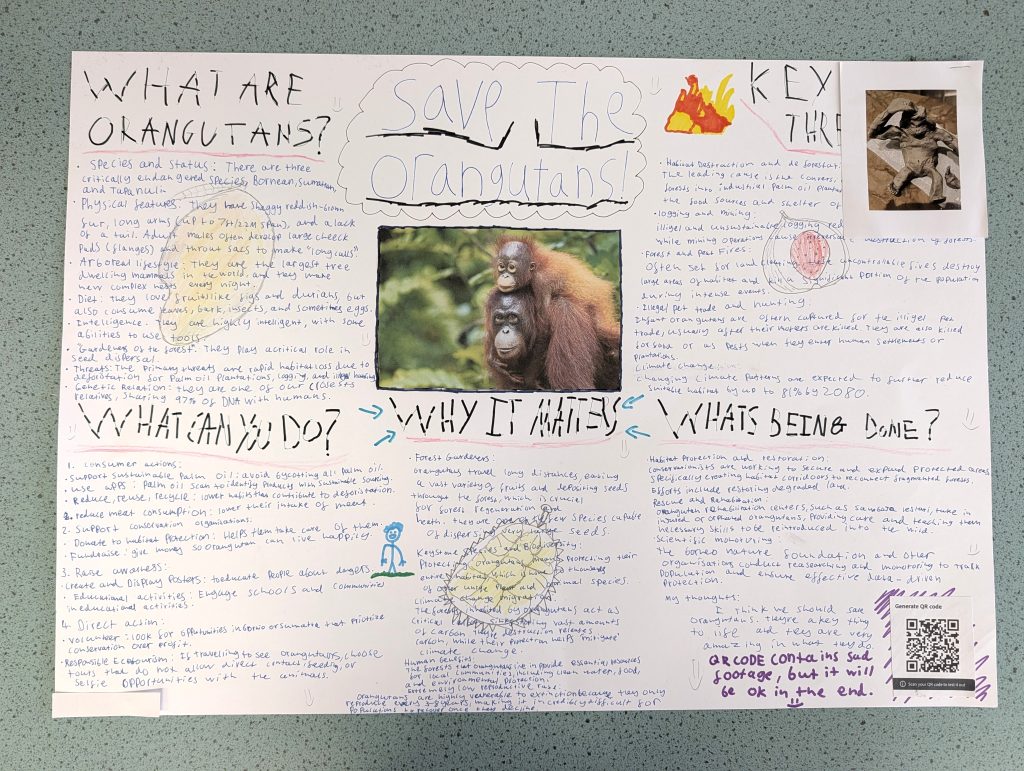 Save The
Orangutans!
WHAT ARE
ORANGUTANS?
• Species and status: There are three
critically endangered species, Bornean, Sumatran,
and Tapanuli
• Physical features: They have shaggy reddish-brown
fur, long arms (up to 7ft/2.2m span), and a lack
of a tail. Adult males often develop large cheeck
Pads (flanges) and throat sacs to make "long calls".
• Arboreal lifestyle: They are the largest tree
dwelling mammals in the world and they make
new complex nests every night.
• Diet: they love fruits like figs and durians, but
also consume leaves, bark, insects, and sometimes eggs.
• Intelligence: They are highly intelligent, with some
abilities to use tools.
• Gardeners of the forest: They play a critical role in
seed dispersal
• Threats: The primary threats are rapid habitat loss due to
deforestation for palm oil plantations, logging, and illegal hunting
• Genetic Relation: they are one of our closests
relatives, sharing 97% of DNA with humans.
KEY
THR
• Habitat Destruction and deforestati
The leading cause is the convers
forests into industrial palm oil plantat
the food sources and shelter of
• logging and mining:
illegal and unsustainable logging red
while mining operations cause destruction of forests
• Forest and Peat Fires
Often set for land clearing, uncontrollable fires destroy
large areas of habitat and kill a significant portion of the population
during intense events.
• Illegal pet trade and hunting:
Infant orangutans are often captured for the illigel pet
trade, usually after their mothers are killed. They are also killed
for food or as pests when they enter human settlements or
plantations.
Climate change
changing climate patterns are expected to further reduce
suitable habitat by up to 81% by 2080.
WHAT CAN YOU DO?
1. Consumer actions:
Support Sustainable Palm oil: avoid bycotting all palm oil.
• use apps: palm oil scan to identify products with sustainable sourcing.
• Reduce, reuse, recycle: lower habits that contribute to deforistation.
reduce meat consumption: lower their intake of meat.
2. Support conservation organisations:
• Donate to habitat protection: Helps them take care of them
• Fundraise: give money so orangutan can live happily.
3. Raise awareness:
create and Display Posters: to educate people about dangers.
• Educational activities: Engage schools and communities
in educational activities.
4. Direct action:
• Volunteer: look for oppitunities in borneo or sumatra that priotize
conservation over profit.
Responsible Ecotourism: If travelling to see orangutans, choose
tours that do not allow direct contact, feeding, or
selfie opportunities with the animals.
WHY IT MATTERS
• Forest Gardeners:
Orangutans travel long distances, eating
a vast variety of fruits and depositing seeds
through the forest, which is crucial
for forest regeneration and
health. they are one of few species capable
of dispersing very large seeds.
Keystone species and Biodiversity:
Protecting orangutans means protecting their
entire habitat, which is home to thousands
of other unique plant and animal species.
Climate change
The forests inhabited by orangutans act as
critical vast amounts of
carbon, their destruction releases
carbon, while their protection helps mitigate
climate change.
Human benefits:
The forests that orangutans live in provide essential resources
for local communities, including clean water, food,
and environmental protection.
Extremely low reproductive rate:
Orangutans are highly vulnerable to extinction because they only
reproduce every 7-8 years, making it incredibly difficult for
populations to recover once they decline.
WHATS BEING DONE?
Habitat protection and restoration:
Conservationists are working to secure and expand protected areas
specifically creating habitat corridors to reconnect fragmented forests.
Efforts include restoring degraded land.
Rescue and Rehabilitation:
Orangutan rehabilitation centers, such as take in
injured or orphaned orangutans, Providing care and teaching them
necessary skills to be reintroduced into the wild.
Scientific monotoring:
The borneo nature foundation and other
organisations conduct reasearching and monotoring to track
population and ensure effective data-driven
Protection.
My thoughts:
I think we should save
orangutans. they're a key thing
to life and they are very
amazing in what they do.
QR CODE CONTAINS sad
footage, but it will
be ok in the end.
Generate QR code
Scan your QR code to test it out